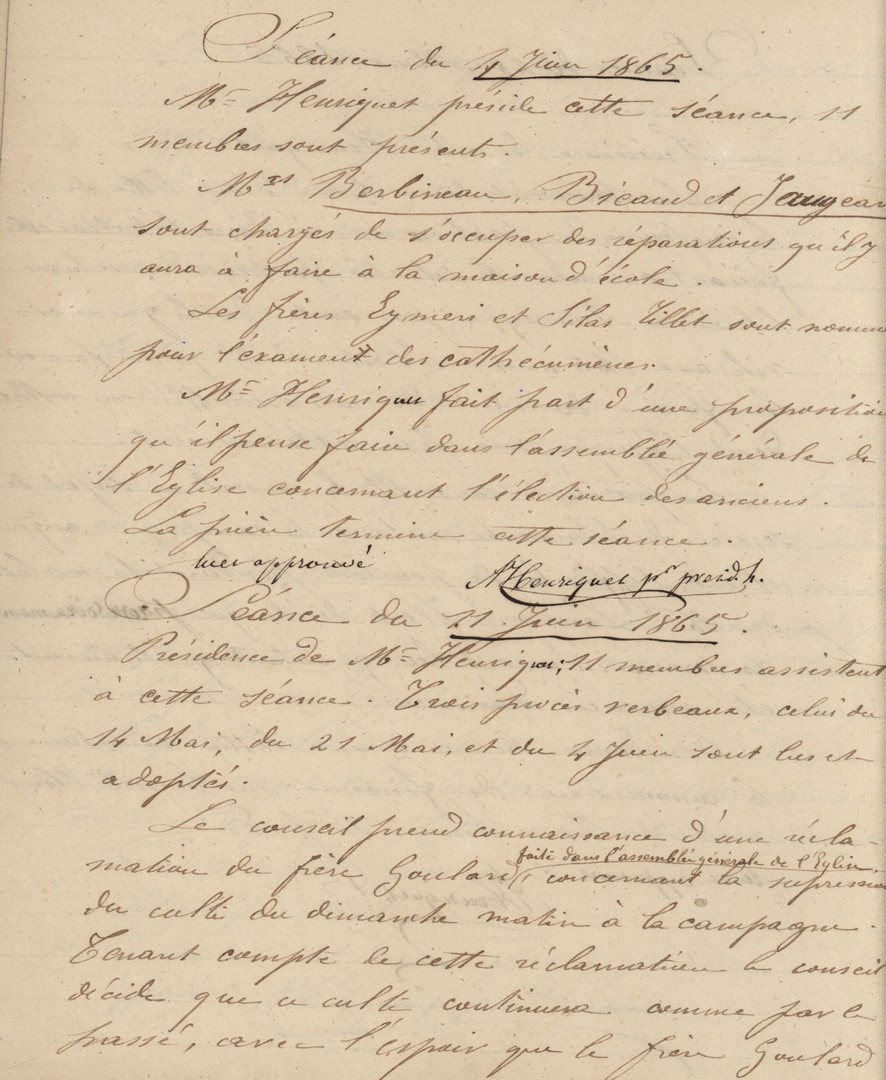 Séance du 4 Juin 1865.
Mr Henriquet préside cette séance, 11
membres sont présents.
Mrs Berbineau, Bicaud et Jaugear
sont chargés de s'occuper des réparations qu'il y
aura à faire à la maison d'école.
Les frères Eymeri et Silas Tillet sont nommé
pour l'examen des cathécumènes.
Mr Henriquet fait part d'une proposition
qu'il pense faire dans l'assemblée générale de
l'Eglise concernant l'élection des anciens.
La prière termine cette séance.
lu et approuvé
AHenriquet pr presid. h.
Séance du 21 Juin 1865.
Présidence de Mr Henriquet; 11 membres assistent
à cette séance. Trois procès verbeaux, celui du
14 Mai, du 21 Mai, et du 4 Juin sont lus et
adoptés.
Le conseil prend connaissance d'une récla-
faite dans l'assemblée générale de l'Eglise,
mation du frère Goulard, concernant la supression
du culte du dimanche matin à la campagne.
Tenant compte de cette réclamation le conseil
décide que ce culte continuera comme par le
passé, avec l'espoir que le frère Goulard